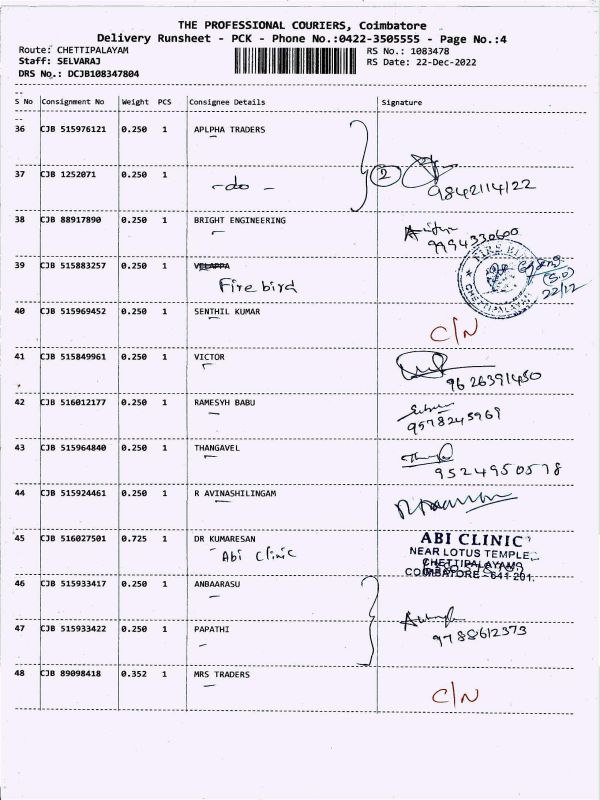 THE PROFESSIONAL COURIERS, Coimbatore
Delivery Runsheet - PCK - Phone No.:0422-3505555 - Page No.:4
Route: CHETTIPALAYAM RS No.: 1083478
Staff: SELVARAJ RS Date: 22-Dec-2022
DRS No.: DCJB108347804
S No Consignment No Weight PCS Consignee Details Signature
36 CJB 515976121 0.250 1 APLPHA TRADERS
37 CJB 1252071 0.250 1 -do- 2 9842114122
38 CJB 88917890 0.250 1 BRIGHT ENGINEERING
9994330600
39 CJB 515883257 0.250 1 VELAPPA
Fire bird
FIRE BI
CHETTIPALAYAM
22/12
40 CJB 515969452 0.250 1 SENTHIL KUMAR
C/N
41 CJB 515849961 0.250 1 VICTOR
9626391450
42 CJB 516012177 0.250 1 RAMESYH BABU
9578245969
43 CJB 515964840 0.250 1 THANGAVEL
9524950578
44 CJB 515924461 0.250 1 R AVINASHILINGAM
45 CJB 516027501 0.725 1 DR KUMARESAN
Abi Clinic
ABI CLINIC
NEAR LOTUS TEMPLE,
CHETTIPALAYAM
COIMBATORE - 641 201.
46 CJB 515933417 0.250 1 ANBAARASU
47 CJB 515933422 0.250 1 PAPATHI
9788612373
48 CJB 89098418 0.352 1 MRS TRADERS
C/N